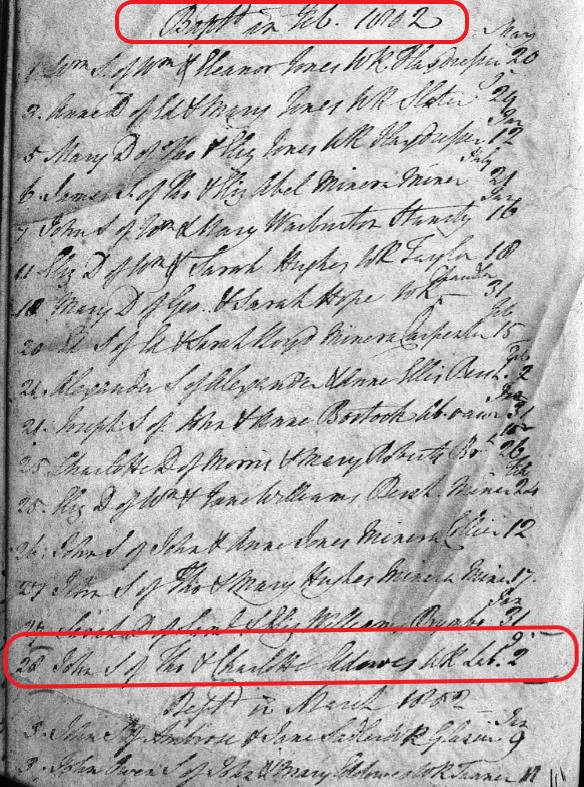 Bapt'd in Feb. 1802
May
1 Wm S of Wm & Eleanor Jones WR Flaxdresser 20
2. Anne D of Ed & Mary Jones WR Slater 24
Jan
5 Mary D of Tho & Eliz Jones WR Flaxdresser 12
July
6 James S of Tho & Eliz Abel Minera Miner 21
Jan
7 John S of Wm & Mary Warburton 16
11 Eliz D of Wm & Sarah Hughes WR Taylor 18
Chandler
18 Mary D of Geo. & Sarah Hope WR 31
Feb
20 Ed S of Ed & Sarah Lloyd Minera Carpenter 15
Feb
21. Alexander S of Alexander & Anne Ellis Bersh. 2
Jan
21. Joseph S of John & Anne Bostock 31
25 Charlotte D of Morris & Mary Roberts Br 26
Feb
25. Eliz D of Wm & Jane Williams Bersh. Miner 24
26. John S of John & Anne Jones Minera Collier 12
27 John S of Tho & Mary Hughes Minera Miner 17.
Jan
Sarah D of Saml & Eliz Williams Brymbo 31
28 John S of Tho & Charlotte WR Lab. 2
Bapt'd in March 1802
Jan
3. John S of Ambrose & Jane WR Glazier 9
3. John Owen S of John & Mary Eddowes WR Tanner 11